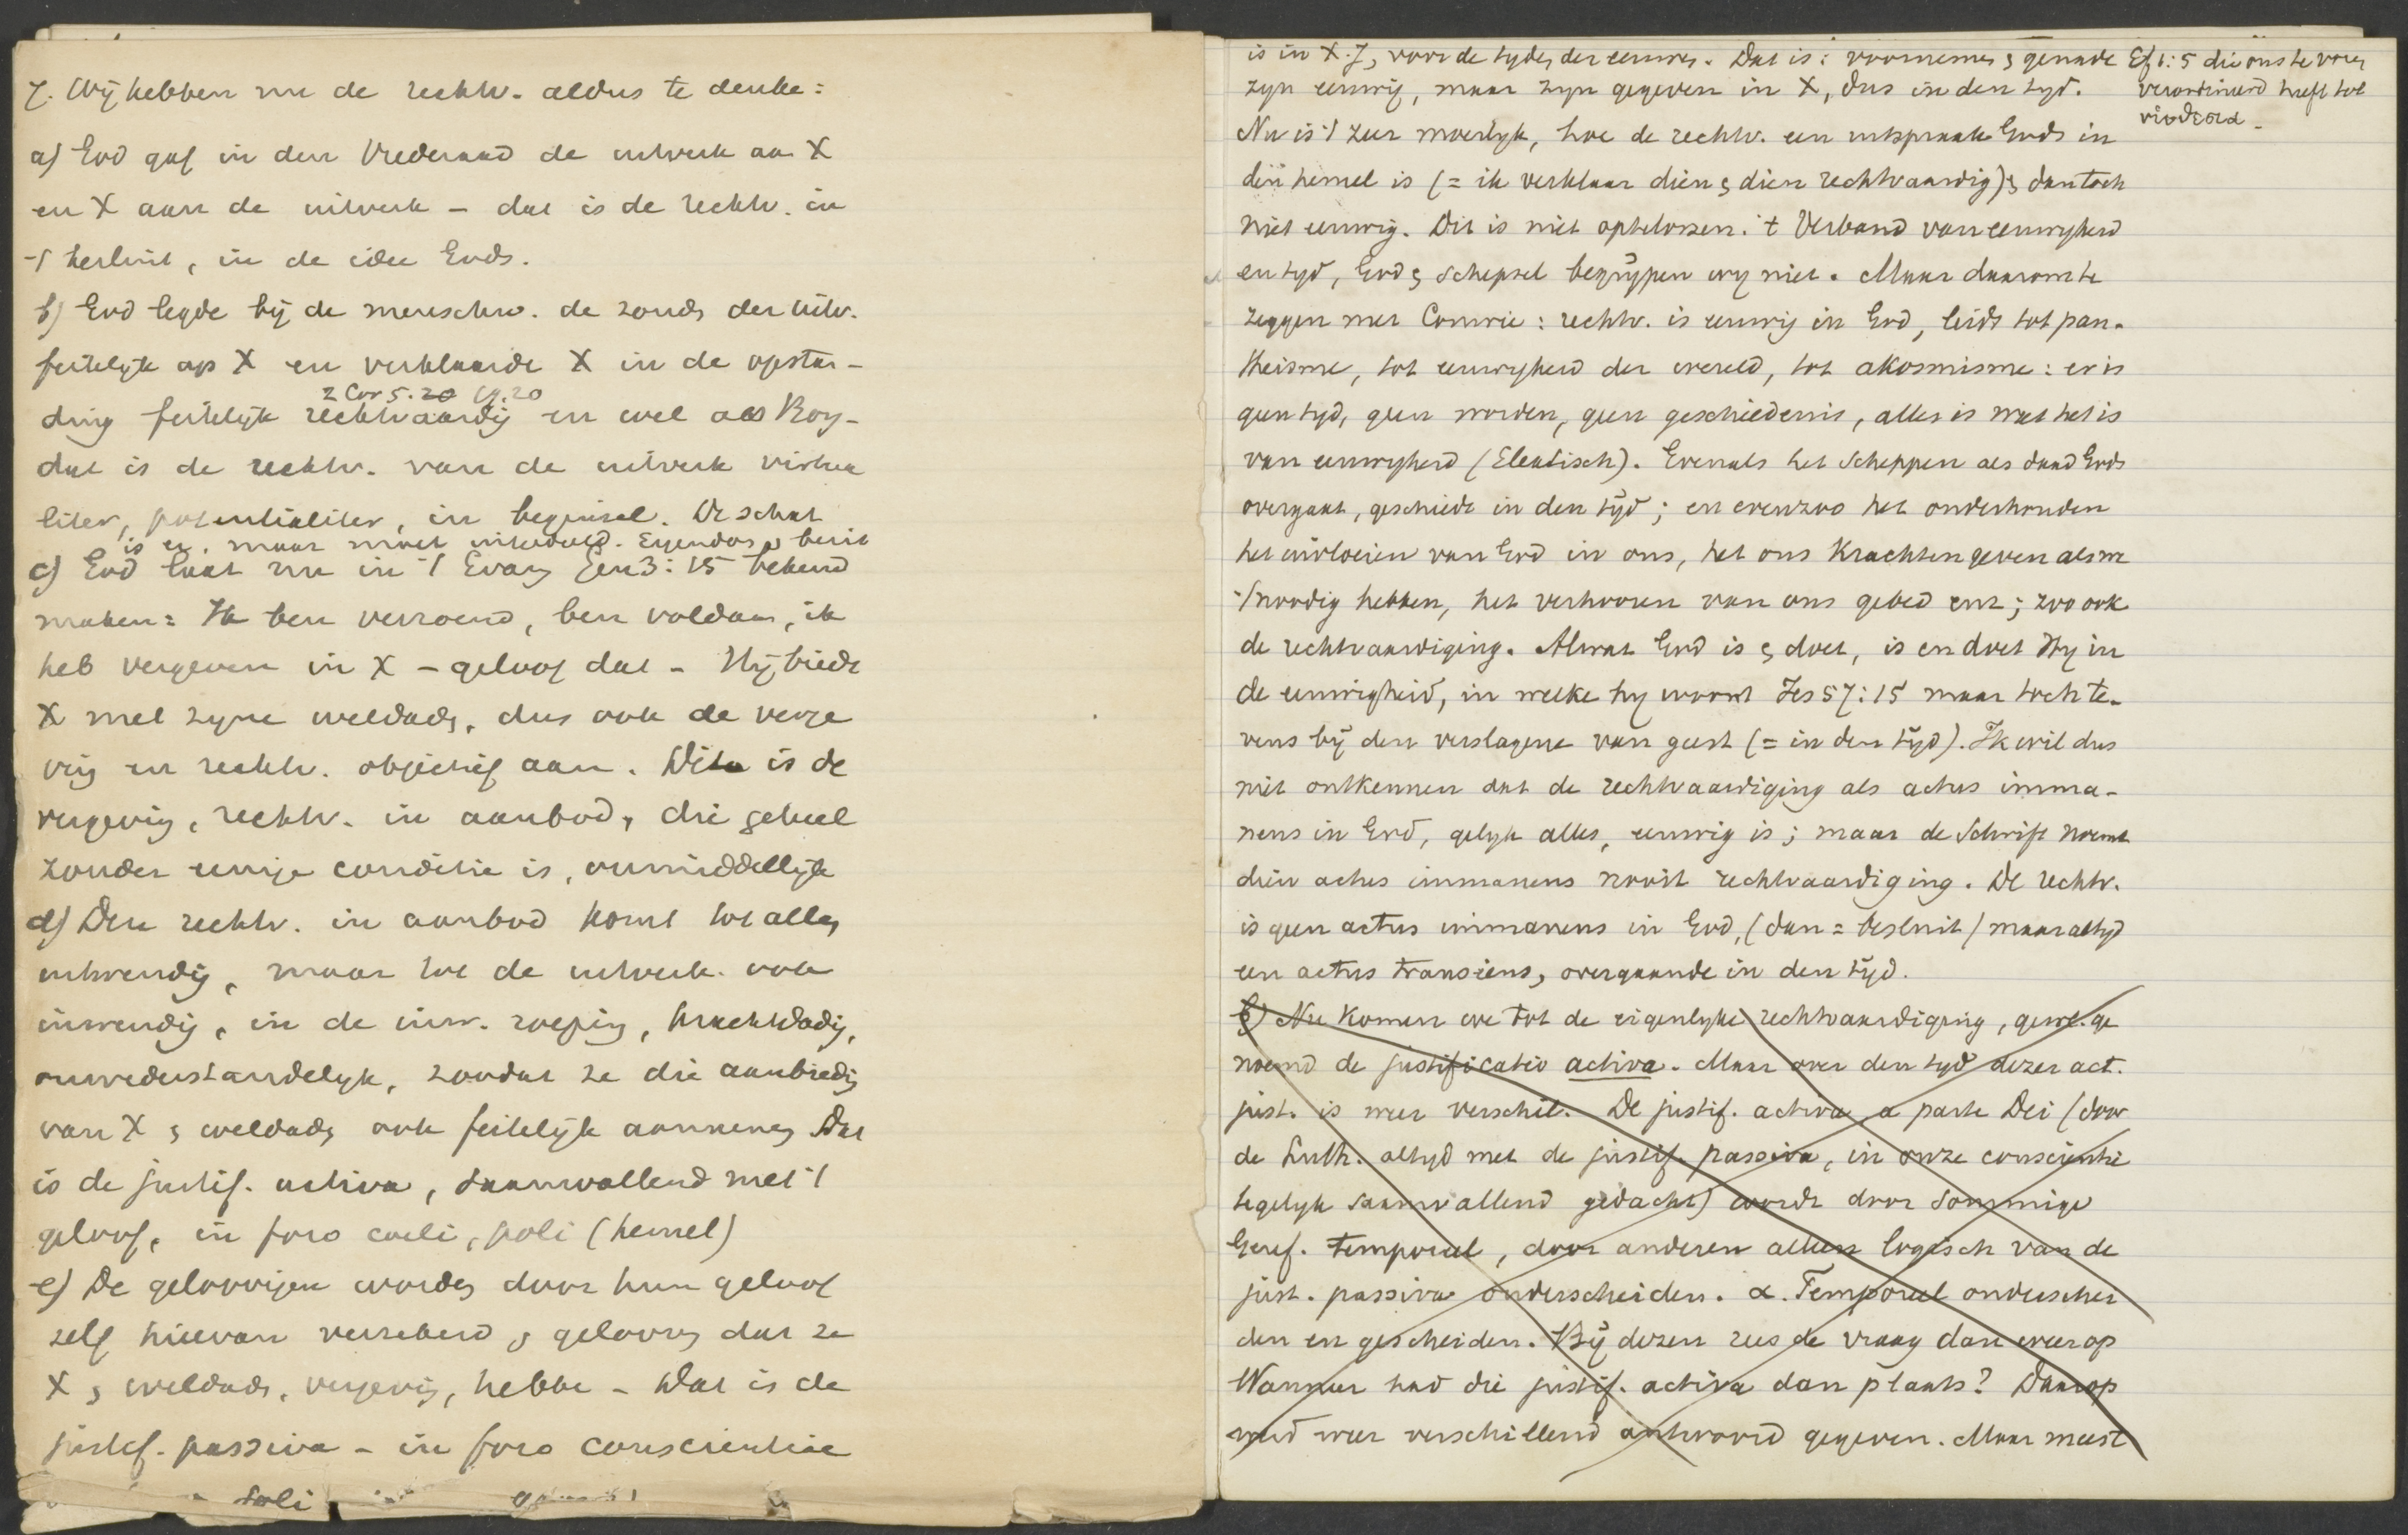 7. Wij hebben nu de rechtv. aldus te denke:
a) God gaf in den Vrederaad de uitverk aan X
en X aan de uitverk – dat is de rechtv. in
't besluit, in de idee Gods.
b) God legde bij de menschw. de zonds der uitv.
feitelijk op X en verklaarde X in de opstan-
2 Cor 5.20 19.20
ding feitelijk rechtvaardig en wel als Borg –
dat is de rechtv. van de uitverk virtua
liter, potentialiter, in beginsel. De schat
is er, maar moet uitgedeeld. Eigendom, bezit
c) God laat nu in 't Evang Gen 3:15 bekend
maken: Ik ben verzoend, ben voldaan, ik
heb vergeven in X – geloof dat – Hij biedt
X met zijne weldads, dus ook de verge
ving en rechtv. objectief aan. Dit is de
vergeving, rechtv. in aanbod, die geheel
zonder eenige conditie is, onmiddellijk
d) Deze rechtv. in aanbod komt tot allen
uitwendig, maar tot de uitverk. ook
inwendig, in de inw. roeping, krachtdadig,
onwederstandelijk, zoodat ze die aanbiedig
van X & weldads ook feitelijk aannemen Dat
is de justif. activa, saamvallend met 't
geloof, in foro coeli, poli (hemel)
e) De geloovigen worden door hun geloof
zelf hiervan verzekerd, & gelooven dat ze
X & weldads, vergeving, hebbe – Dat is de
justif. passiva – in foro conscientiae
soli
is in X.J, voor de tyden der eeuwen. Dat is: voornemen & genade
zyn eeuwig, maar zyn gegeven in X, dus in den tyd.
Nu is 't zeer moeilyk, hoe de rechtv. een uitspraak Gods in
den hemel is (= ik verklaar dien & dien rechtvaardig) & dan toch
niet eeuwig. Dit is niet optelossen. 't Verband van eeuwigheid
en tyd, God & schepsel begrijpen wy niet. Maar daarom te
zeggen met Comrie: rechtv. is eeuwig in God, leidt tot pan-
theisme, tot eeuwigheid der wereld, tot akosmisme: er is
geen tyd, geen worden, geen geschiedenis, alles is wat het is
van eeuwigheid (Eleatisch). Evenals het scheppen als daad Gods
overgaat, geschiedt in den tijd; en evenzoo het onderhouden
het invloeien van God in ons, het ons Krachten geven als we
't noodig hebben, het verhooren van ons gebed enz; zoo ook
de rechtvaardiging. Alwat God is & doet, is en doet Hy in
de eeuwigheid, in welke hy woont Jes 57:15 maar toch te-
vens bij den verslagene van geest (= in den tijd). Ik wil dus
niet ontkennen dat de rechtvaardiging als actus imma-
nens in God, gelyk alles, eeuwig is; maar de Schrift noemt
dien actus immanens nooit rechtvaardiging. De rechtv.
is geen actus immanens in God, (dan = besluit) maar altyd
een actus transiens, overgaande in den tijd.
b) Nu Komen we tot de eigenlyke rechtvaardiging, gew. ge
noemd de justificatio activa. Maar over den tyd dezer act.
just. is weer verschil. De justif. activa a parte Dei (door
de Luth. altyd met de justif. passiva, in onze conscientie
tegelyk saamvallend gedacht) wordt door sommige
Geref. temporeel, door anderen alleen logisch van de
just. passiva onderscheiden. α. Temporeel onderschei
den en gescheiden. Bij dezen rees de vraag dan weer op
Wanneer had die justif. activa dan plaats? Daarop
werd weer verschillend antwoord gegeven. Maar meest
Ef 1:5 die ons te voren
verordineerd heeft tot